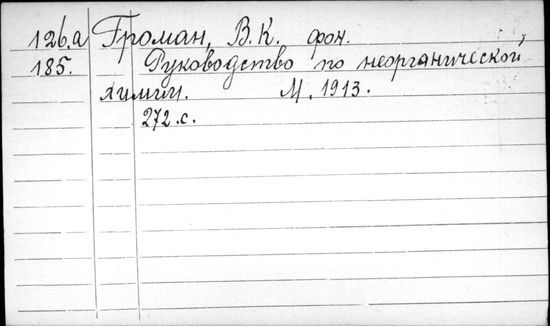 126.а Громан, В.К. фон.
185. Руководство по неорганической
химии. М. 1913.
272.с.